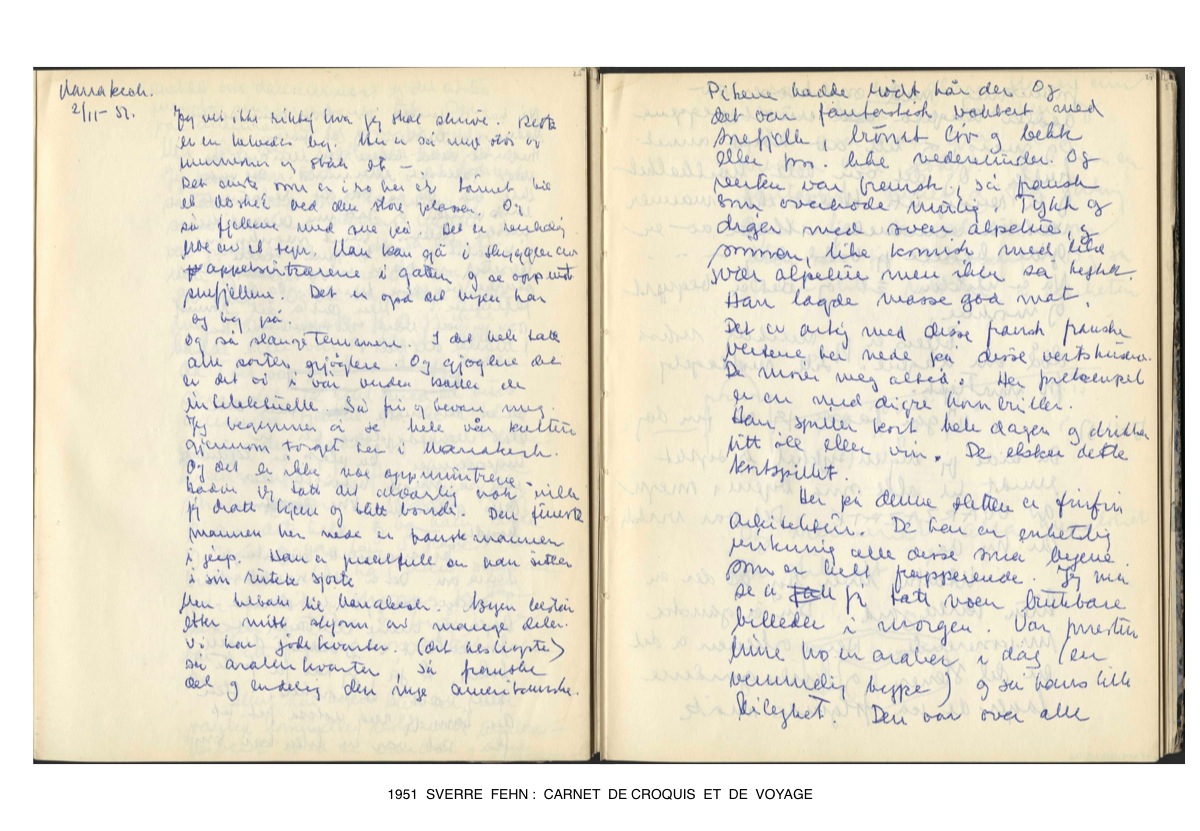 Marrakech.
2/11- 51.
Jeg vet ikke riktig hva jeg skal skrive. Dette
er en herlig by. Her er så mye støv og
mennesker og skitt at
Det eneste som er i ro her er tårnet
ved den store plassen. Og
så fjellene med sne på. Det er
Man kan gå i skyggen av
appelsintrærene i gaten og se opp mot
snefjellene. Det er godt det
og tog på.
Og så slangetemmere. I det hele tatt
alle sorter gjøglere. Og gjøglere det
er det vi i vår verden kaller de
intelektuelle. Så fri og bevar meg.
Jeg begynner å se hele vår kultur
gjennom torget her i Marrakech.
Og det er ikke noe oppmuntrende.
hadde jeg tatt det alvorlig nok ville
jeg dratt hjem og blitt bonde. Den fineste
mannen her nede er franskmannen
i jeep. Han er prektfull der han sitter
i sin rutete sjorte
Men tilbake til Marrakech. Byen består
etter mitt skjønn av mange deler.
Vi har jødekvarter. (det hesligste)
så araberkvarter, så franske
del og endelig den nye amerikanske.
Pikene hadde rødt hår der. Og
det var fantastisk vakkert med
snefjell bekk
eller foss like nedenunder. Og
verten var fransk, så fransk
som overhode mulig. Tykk og
diger med svær alpelue, og
sønnen, like komisk med like
svær alpelue men ikke så tykk.
Han lagde masse god mat.
Det er artig med disse fransk franske
vertene her nede på disse vertshusene.
De morer meg alltid. Her foreksempel
er en med digre hornbriller.
Han spiller kort hele dagen og drikker
litt öll eller vin. De elsker dette
kortspillet.
Her på denne sletten er finfin
arkitektur. De har en enhetlig
virkning alle disse små byene
som er helt frapperende. Jeg må
se å få tatt noen brukbare
billeder i morgen. Var
inne hos en araber i dag (en
vemmelig type) og så hans lille
leilighet. Den var over alle
1951 SVERRE FEHN : CARNET DE CROQUIS ET DE VOYAGE